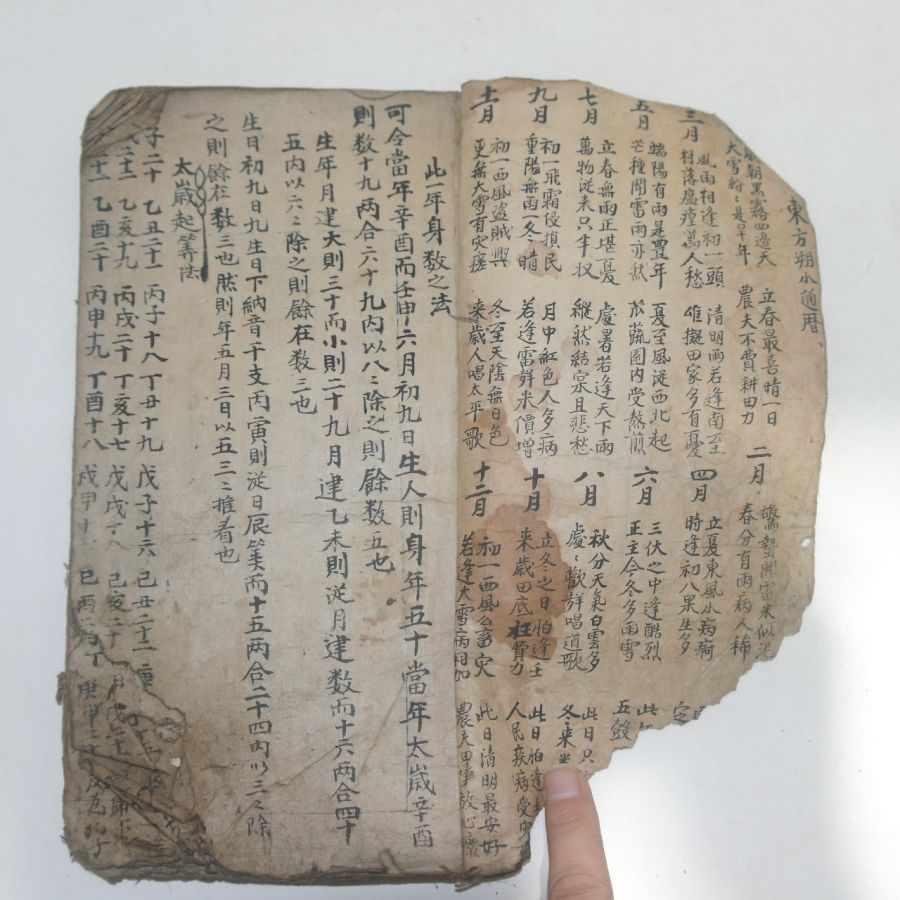 東方朔水適暦
歲朝黑霧四邊天 立春最喜晴一日
大雪紛々是旱年 農夫不費耕田力
二月 驚蟄聞雷米似泥
春分有雨病人稀
三月 風雨相逢初一頭 清明雨若逢南至
村落瘟疸萬人愁 田家多有憂
四月 立夏東風水病痾
時逢初八果生多
五月 端陽有雨是豊年 夏至風從西北起
芒種聞雷雨亦然 苽蔬園内受熬煎
六月 三伏之中逢酷烈
正主今冬多雨雪
五
七月 立春無雨正堪憂 處暑若逢天下雨
萬物從來只半収 縱然結宲且悲愁
八月 秋分天氣白雲多 此日只
處々歡群唱道歌 冬來
九月 初一飛霜侵損民 月中紅色人多病
重陽無雨一冬晴 若逢雷群米價增
十月 立冬之日怕逢壬 此日怕逢
來歲田底枉費力 人民疾病受
十一月 初一西風盜賊興 冬至天陰無日色
更無大雪有灾瘥 來歲人唱太平歌
十二月 初一西風六畜灾 此日清明最安好
若逢大雪病相加 農夫田事放心懷
此一年身数之法
可令當年辛酉而壬申六月初九日生人則身年五十當年太歲辛酉
則数十九两合六十九内以八々除之則餘数五也
生年月建大則三十而小則二十九月建乙未則從月建数而十六两合四十
五内以六々除之則餘在数三也
生日初九日九生日下納音干支丙寅則從日辰筭而十五两合二十四内以三々除
之則餘在数三也然則年五月三日以五三々推看也
太歲起筭法
子二十 乙丑二十一 丙子十八 丁丑十九 戊子十六 己丑二十二
乙亥十九 丙戌二十 丁亥十七 戊戌十八 己亥二十
乙酉二十 丙申十九 丁酉十八 戊申十 己酉 庚申